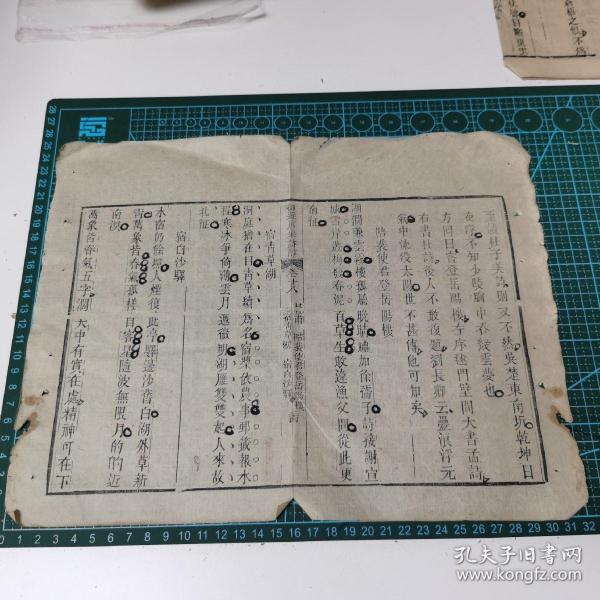 至讀杜子美詩則又不然吳楚東南坼乾坤日
夜浮不知少陵胸中吞幾雲夢也
方回曰嘗登岳陽樓左序毬門壁間大書孟詩
右書杜詩後人不敢復題劉長卿云疊浪浮元
氣中流沒太陽世不甚傳他可知矣
陪裴使君登岳陽樓
湖闊兼雲霧樓孤屬晚晴禮加徐孺子詩接謝宣
城雪岸叢梅發春泥百草生敢違漁父問從此更
南征
卷十八
宿青草湖
洞庭猶在目青草續為名宿槳依農事郵籤報水
程寒冰爭倚薄雲月遞微明湖雁雙雙起人來故
北征
宿白沙驛
水宿仍餘照人煙復此亭驛邊沙舊白湖外草新
青萬象皆春氣孤槎自客星隨波無限月的的近
南溟
萬象皆春氣五字濶大中有實在處精神可在下
孔夫子旧书网
www.kongfz.com